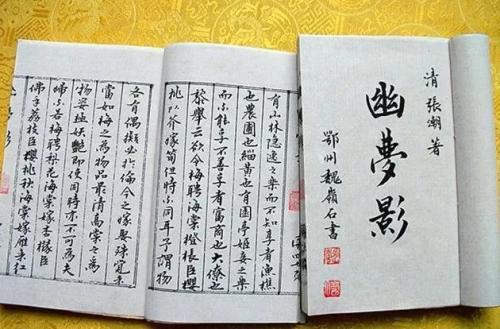 清 張潮著
幽夢影
鄂州魏嶺石書
有山林隱逸之樂而不知享者漁樵
也農圃也緇黃也有園亭姬妾之樂
而不能享不善享者富商也大僚也
黎舉云欲令梅聘海棠橙棖臣櫻
桃以芥嫁筍但時不同耳予謂物
各有偶擬必於倫今之嫁娶殊覺未
當如梅之為物品最清高棠之為
物姿極妖艷即使同時亦不可為夫
婦不若梅聘梨花海棠嫁杏櫞臣
佛手荔枝臣櫻桃秋海棠嫁雁來紅